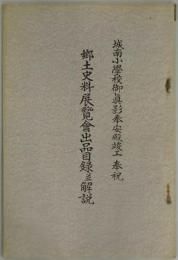 城南小學校御眞影奉安殿竣工奉祝
鄕土史料展覽會出品目錄並解說